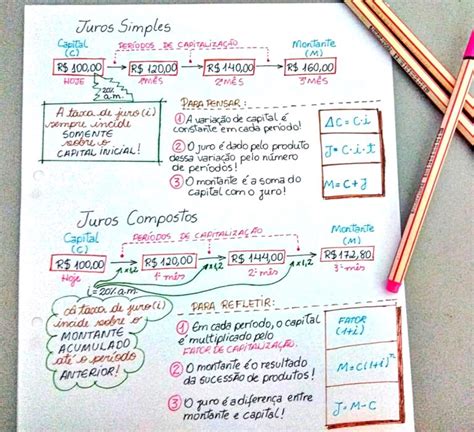 Juros Simples
Capital (C)
PERÍODOS DE CAPITALIZAÇÃO
Montante (M)
R$ 100,00
R$ 120,00
R$ 140,00
R$ 160,00
HOJE
1º MÊS
2º MÊS
3º MÊS
20% a.m.
A taxa de juro (i)
sempre incide
SOMENTE
sobre o
CAPITAL INICIAL!
PARA PENSAR:
① A variação de capital é
constante em cada período!
② O juro é dado pelo produto
dessa variação pelo número
de períodos!
③ O montante é a soma do
capital com o juro!
ΔC = C·i
J = C·i·t
M = C + J
Juros Compostos
Capital (C)
PERÍODOS DE CAPITALIZAÇÃO
Montante (M)
R$ 100,00
R$ 120,00
R$ 144,00
R$ 172,80
Hoje
x 1,2
1º mês
x 1,2
2º mês
x 1,2
3º mês
i = 20% a.m.
A taxa de juro (i)
incide sobre o
MONTANTE
ACUMULADO
até o período
ANTERIOR!
PARA REFLETIR:
① Em cada período, o capital
é multiplicado pelo
FATOR DE CAPITALIZAÇÃO.
② O montante é o resultado
da sucessão de produtos!
③ O juro é a diferença entre
montante e capital!
FATOR
(1+i)
M = C(1+i)ⁿ
J = M - C